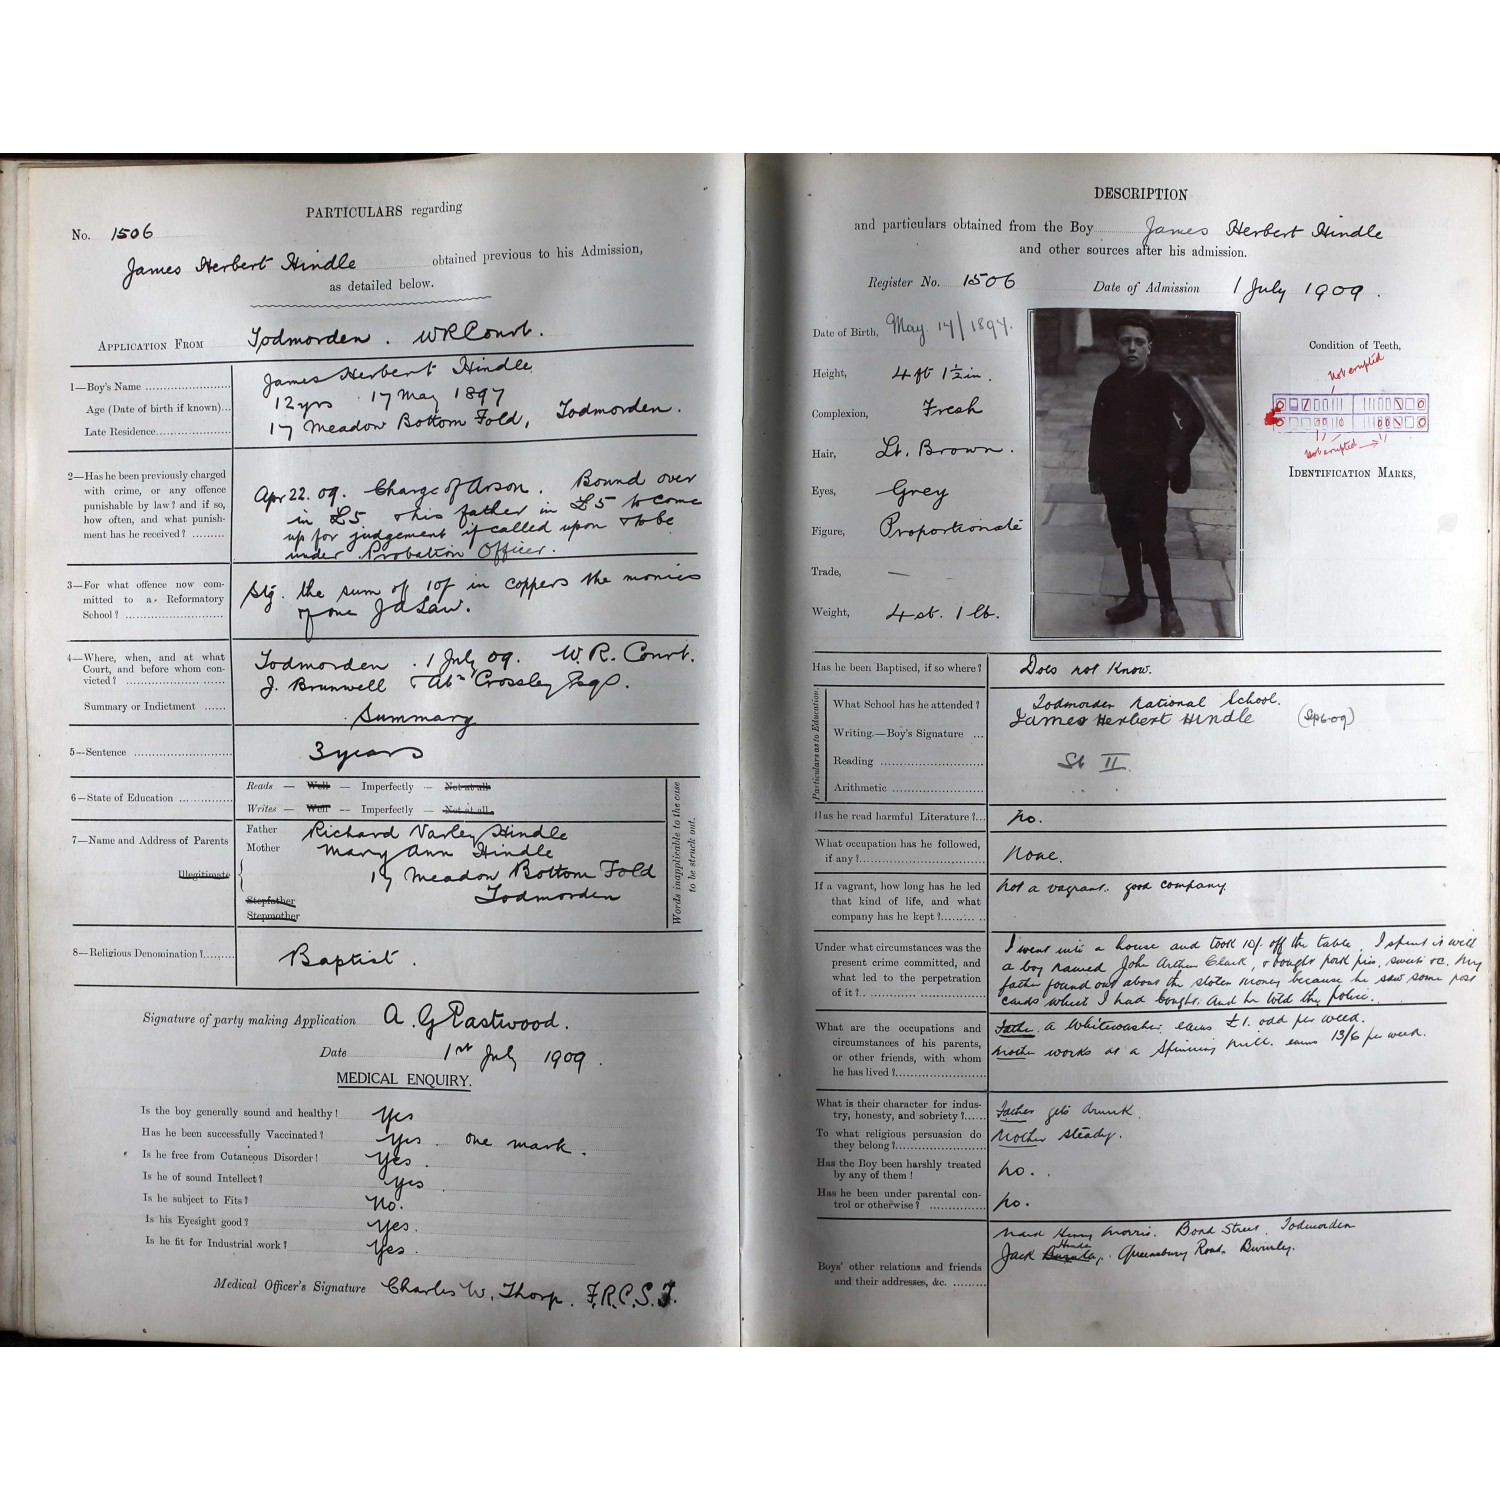 PARTICULARS regarding
No. 1506
James Herbert Hindle obtained previous to his Admission,
as detailed below.
APPLICATION FROM Todmorden. W R Court.
1—Boy's Name James Herbert Hindle
Age (Date of birth if known)... 12 yrs 17 May 1897
Late Residence 17 Meadow Bottom Fold, Todmorden.
2—Has he been previously charged
with crime, or any offence
punishable by law? and if so,
how often, and what punish-
ment has he received?
Apr 22. 09. Charge of Arson. Bound over
in £5 & his father in £5 to come
up for judgement if called upon & to be
under Probation Officer.
3—For what offence now com-
mitted to a Reformatory
School?
Stg. the sum of 10/- in coppers the monies
of one J A Law.
4—Where, when, and at what
Court, and before whom con-
victed?
Todmorden. 1 July 09. W. R. Court.
J. Brunwell & Abm Crossley Esqs.
Summary or Indictment Summary
5—Sentence 3 years
6—State of Education
Reads — Well — Imperfectly — Not at all
Writes — Well — Imperfectly — Not at all.
Words inapplicable to the case
to be struck out.
7—Name and Address of Parents
Illegitimate
Father Richard Varley Hindle
Mother Mary Ann Hindle
17 Meadow Bottom Fold
Todmorden
Stepfather
Stepmother
8—Religious Denomination? Baptist.
Signature of party making Application A. G Eastwood.
Date 1st July 1909.
MEDICAL ENQUIRY.
Is the boy generally sound and healthy? Yes
Has he been successfully Vaccinated? Yes. one mark.
Is he free from Cutaneous Disorder! Yes.
Is he of sound Intellect? Yes
Is he subject to Fits? No.
Is his Eyesight good? Yes.
Is he fit for Industrial work? Yes.
Medical Officer's Signature Charles W. Thorp. F.R.C.S.I.
DESCRIPTION
and particulars obtained from the Boy James Herbert Hindle
and other sources after his admission.
Register No. 1506 Date of Admission 1 July 1909.
Date of Birth, May 17/1897.
Height, 4 ft 1½ in.
Complexion, Fresh
Hair, Lt. Brown.
Eyes, Grey
Figure, Proportionate
Trade, —
Weight, 4 st. 1 lb.
Condition of Teeth,
Not erupted
Not erupted
IDENTIFICATION MARKS,
Has he been Baptised, if so where? Does not Know.
Particulars as to Education.
What School has he attended? Todmorden National School.
Writing.—Boy's Signature James Herbert Hindle (Sep 6 09)
Reading St II.
Arithmetic
Has he read harmful Literature? No.
What occupation has he followed,
if any?
None.
If a vagrant, how long has he led
that kind of life, and what
company has he kept?
Not a vagrant. good company.
Under what circumstances was the
present crime committed, and
what led to the perpetration
of it?
I went into a house and took 10/- off the table. I spent it with
a boy named John Arthur Clark, & bought pork pies, sweets &c. My
father found out about the stolen money because he saw some post
cards which I had bought. And he told the police.
What are the occupations and
circumstances of his parents,
or other friends, with whom
he has lived?
Father a Whitewasher. earns £1. odd per week.
Mother works at a Spinning Mill. earns 13/6 per week.
What is their character for indus-
try, honesty, and sobriety?
Father gets drunk.
To what religious persuasion do
they belong?
Mother steady.
Has the Boy been harshly treated
by any of them!
No.
Has he been under parental con-
trol or otherwise?
No.
Boys' other relations and friends
and their addresses, &c.
Henry Morris. Bond Street. Todmorden
Jack Hindle, Queensbury Road. Burnley.